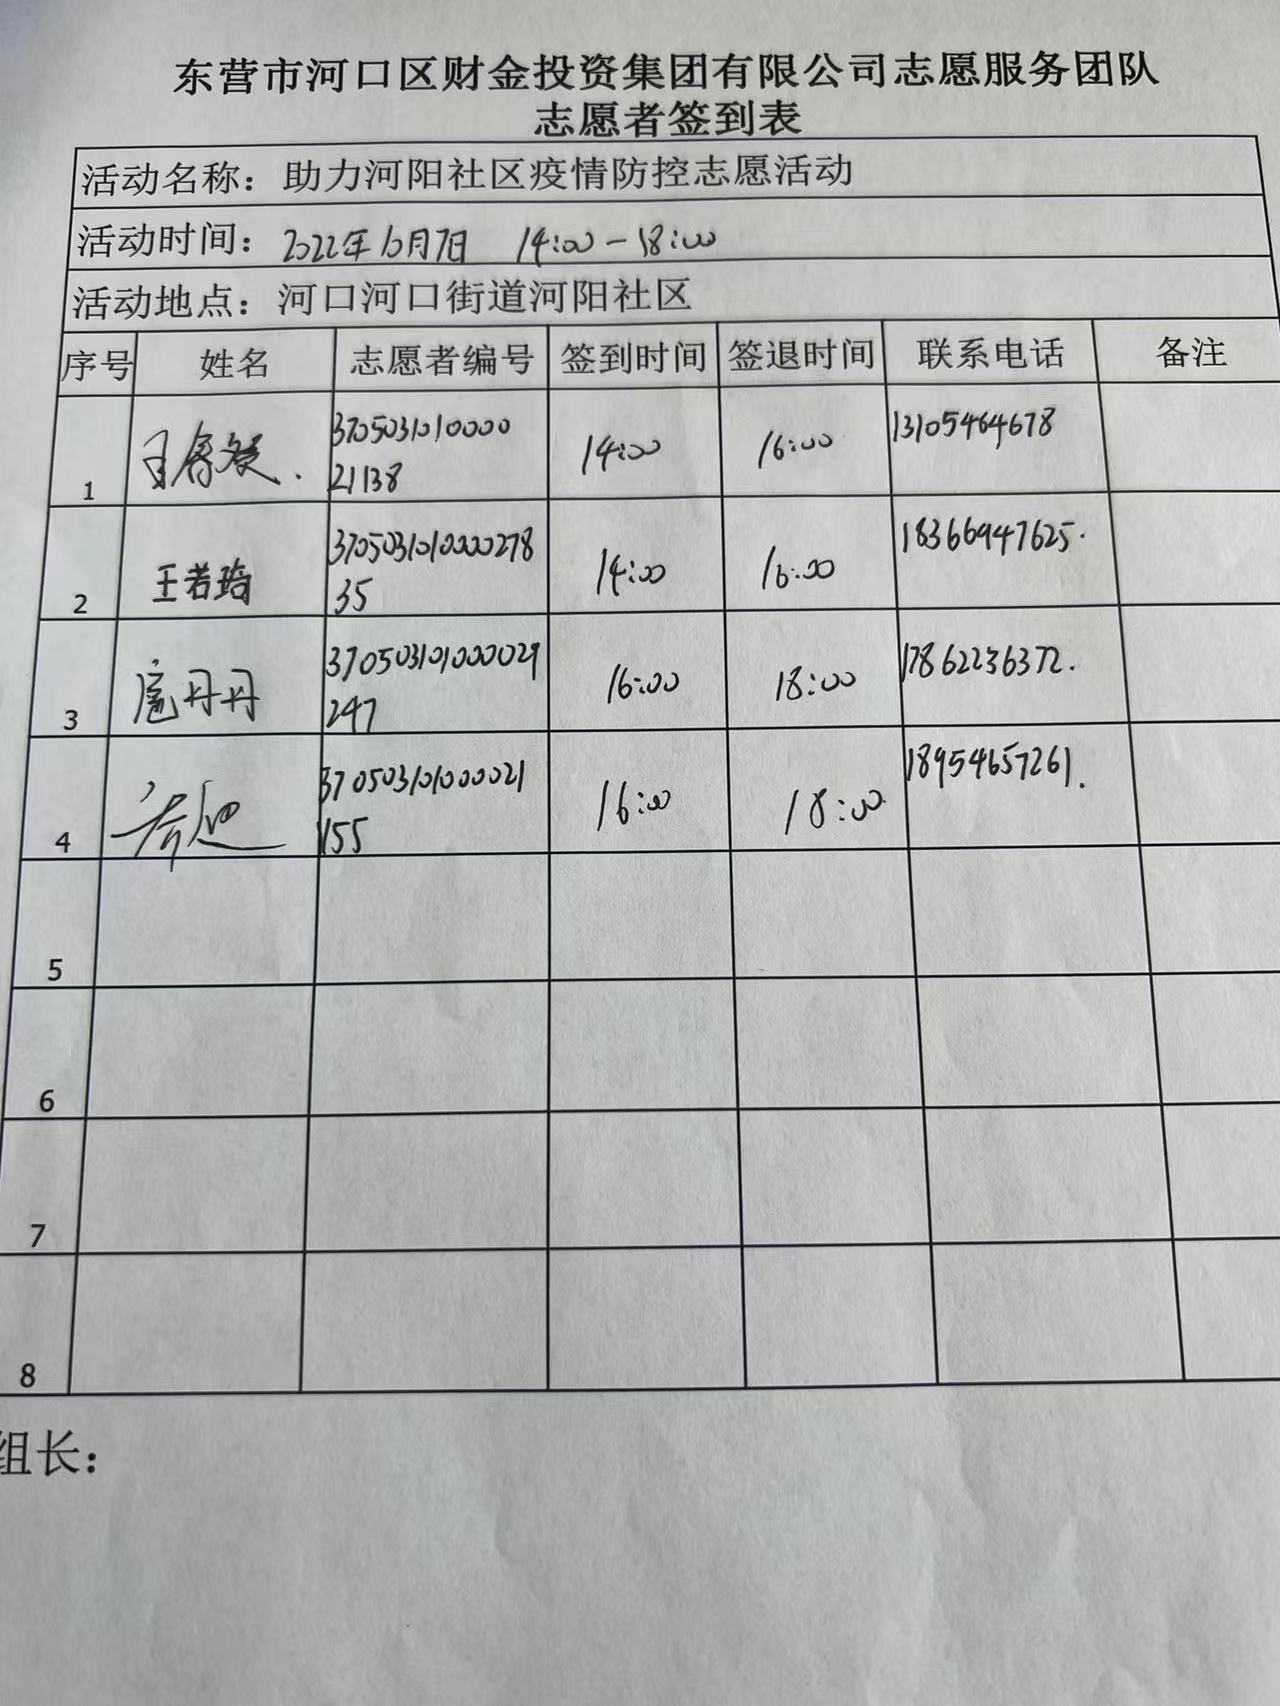 东营市河口区财金投资集团有限公司志愿服务团队
志愿者签到表
活动名称：助力河阳社区疫情防控志愿活动
活动时间：2022年10月7日 14:00-18:00
活动地点：河口河口街道河阳社区
序号 姓名 志愿者编号 签到时间 签退时间 联系电话 备注
1 3705031010000 14:00 16:00 13105464678
21138
2 王若琦 3705031010000278 14:00 16:00 18366947625.
35
3 扈丹丹 370503101000029 16:00 18:00 17862236372.
247
4 370503101000021 16:00 18:00 18954657261.
155
5
6
7
8
组长：